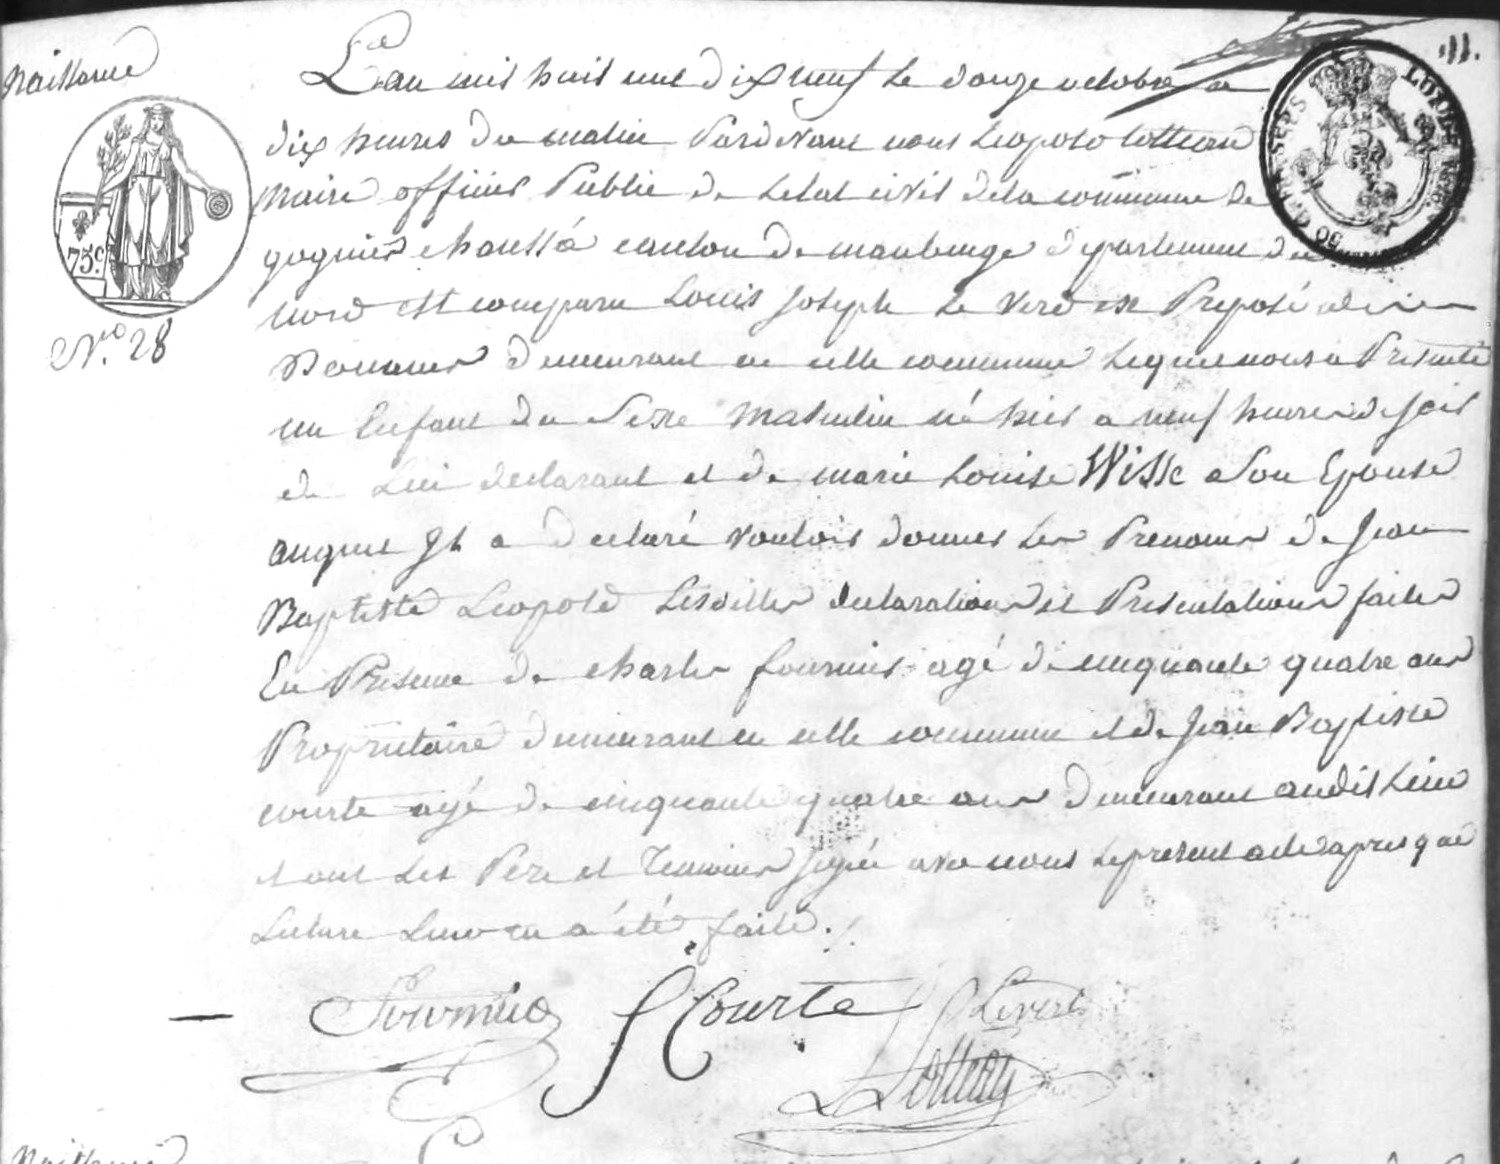 Naissance
L'an mil huit cent dix neuf le douze octobre a
dix heures du matin Pardevant nous Leopold Cotteau
Maire officier Public de Letat civil dela commune de
gognies chaussée canton de maubeuge departement du
nord est comparu Louis Joseph Le Verd Preposé
Douanes demeurant en cette commune Lequel nous a Presenté
un Enfant du Sexe Masculin né hier a neuf heures de soir
de Lui declarant et de marie Louise Wissc a Son Epouse
auquel Il a declaré vouloir donner les Prenoms de Jean
Baptiste Leopold Lesdittes declarations et Presentations faites
En Presence de charles fournier agé de cinquante quatre ans
Proprietaire demeurant en cette commune et de Jean Baptiste
courte agé de cinquante quatre ans demeurant audit Lieu
et ont Les Pere et Temoins signé avec nous Le present acte apres que
Lecture Leur en a été faite.
75c
N.ro 28
Fournier
Courte
Levert